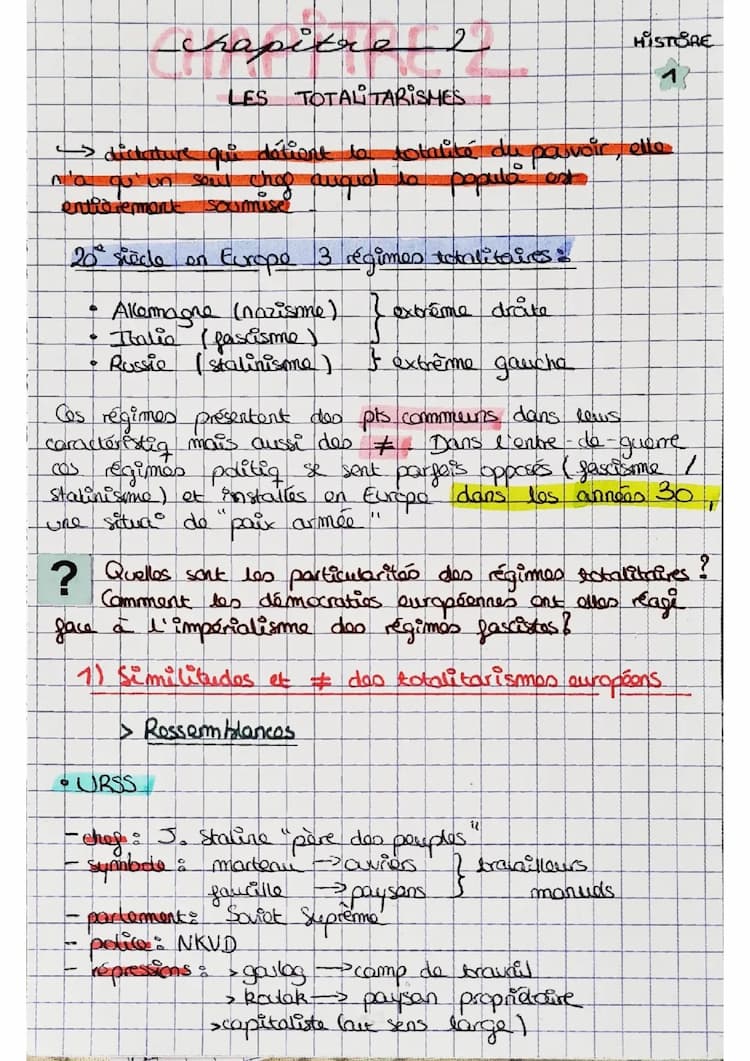 CHAPITRE 2
chapitre 2
HISTOIRE
1
LES TOTALITARISMES
↪ dictature qui détient la totalité du pouvoir, elle
n'a qu'un seul chef auquel la popula° est
entièrement soumise.
20e siècle en Europe 3 régimes totalitaires :
• Allemagne (nazisme) } extrême droite
• Italie (fascisme)
• Russie (stalinisme) } extrême gauche
Ces régimes présentent des pts communs dans leurs
caractéristiq mais aussi des ≠. Dans l'entre-de-guerre
ces régimes politiq se sent parfois opposés (fascisme /
stalinisme) et installés en Europe dans les années 30,
une situa° de "paix armée"
? Quelles sont les particularités des régimes totalitaires ?
Comment les démocraties européennes ont elles réagi
face à l'impérialisme des régimes fascistes ?
1) Similitudes et ≠ des totalitarismes européens
> Ressemblances
• URSS
- chef : J. Staline "père des peuples"
- symbole : marteau → ouvriers } travailleurs
faucille → paysans } manuels
- parlement : Soviet Suprême
- police : NKVD
- répressions : > goulag → camp de travail
> koulak → paysan propriétaire
> capitaliste (au sens large)